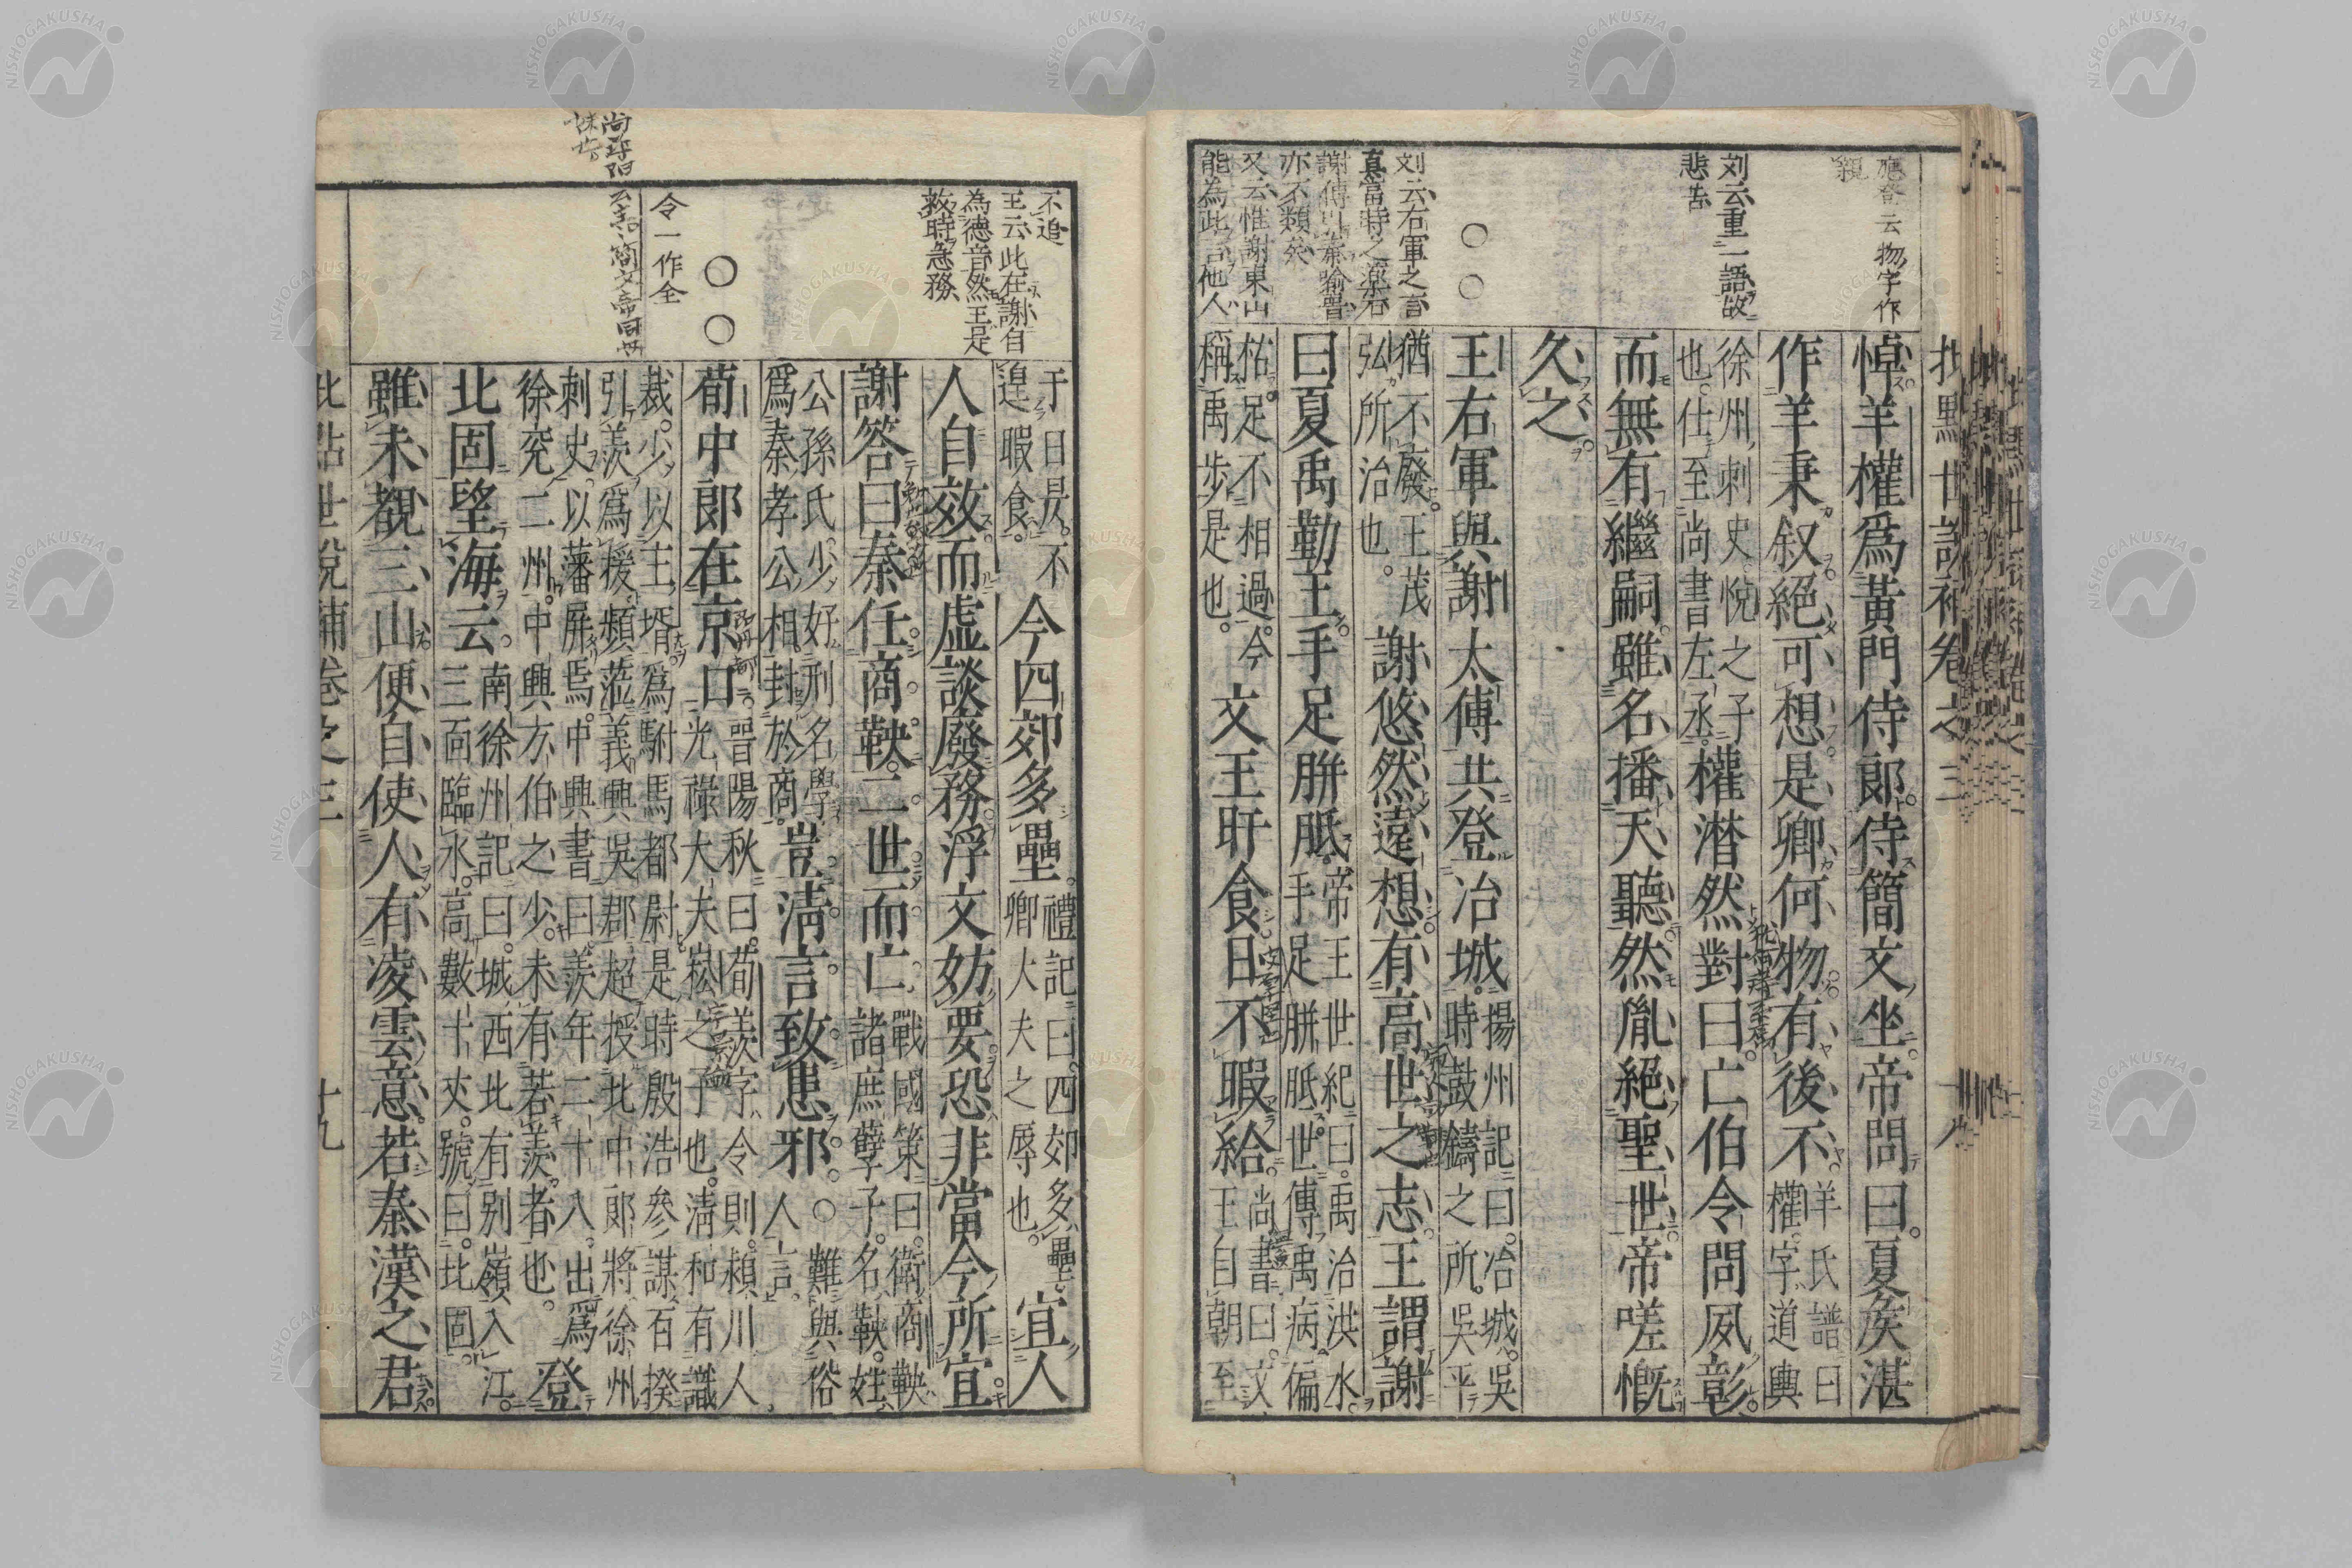 應登云物字作
親
刘云重一語故
悲苦
刘云右軍之言
真當時之藥石
謝傅以秦喻晋
亦不類矣
又云惟謝東山
能為此言他人
悼羊權爲黃門侍郎侍簡文坐帝問曰夏矦湛
作羊秉叙絕可想是卿何物有後不
羊氏譜曰
權字道輿
徐州刺史悅之子
也仕至尚書左丞
權潛然對曰亡伯令問夙彰
而無有繼嗣雖名播天聽然胤絕聖世帝嗟慨
久之
王右軍與謝太傅共登冶城
揚州記曰冶城吳
時鼓鑄之所吳平
猶不廢王茂
弘所治也
謝悠然遠想有高世之志王謂謝
曰夏禹勤王手足胼胝
帝王世紀曰禹治洪水
手足胼胝世傳禹病偏
枯足不相過今
稱禹步是也
文王旰食日不暇給
尚書曰文
王自朝至
不追
王云此在謝自
為德音然王是
救時急務
○○
令一作全
于日昃不
遑暇食
今四郊多壘
禮記曰四郊多壘
卿大夫之辱也
宜人
人自效而虛談廢務浮文妨要恐非當今所宜
謝答曰秦任商鞅二世而亡
戰國策曰衛商鞅
諸庶孽子名鞅姓
公孫氏少好刑名學
爲秦孝公相封於商
豈淸言致患邪
○難與俗
人言
荀中郎在京口
晋陽秋曰荀羨字令則潁川人
光祿大夫崧之子也淸和有識
裁少以主壻爲駙馬都尉是時殷浩參謀百揆
引羨爲援頻蒞義興吳郡超授北中郎將徐州
刺史以藩屏焉中興書曰羨年二十八出爲
徐兗二州中興方伯之少未有若羨者也
登
北固望海云
南徐州記曰城西北有别嶺入江
三面臨水高數十丈號曰北固
雖未覩三山便自使人有凌雲意若秦漢之君
批點世說補卷之三
十九
NISHOGAKUSHA